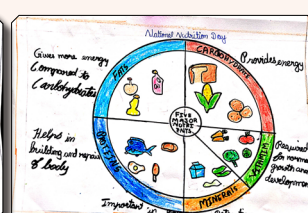 National Nutrition Day
Gives more energy
Compared to
Carbohydrates
FATS
CARBOHYDRATE
Provides energy
FIVE
MAJOR
NUTRI
ENTS
Helps in
building and repair
of body
PROTEINS
VITAMIN
MINERALS
Required
for normal
growth and
development
Important